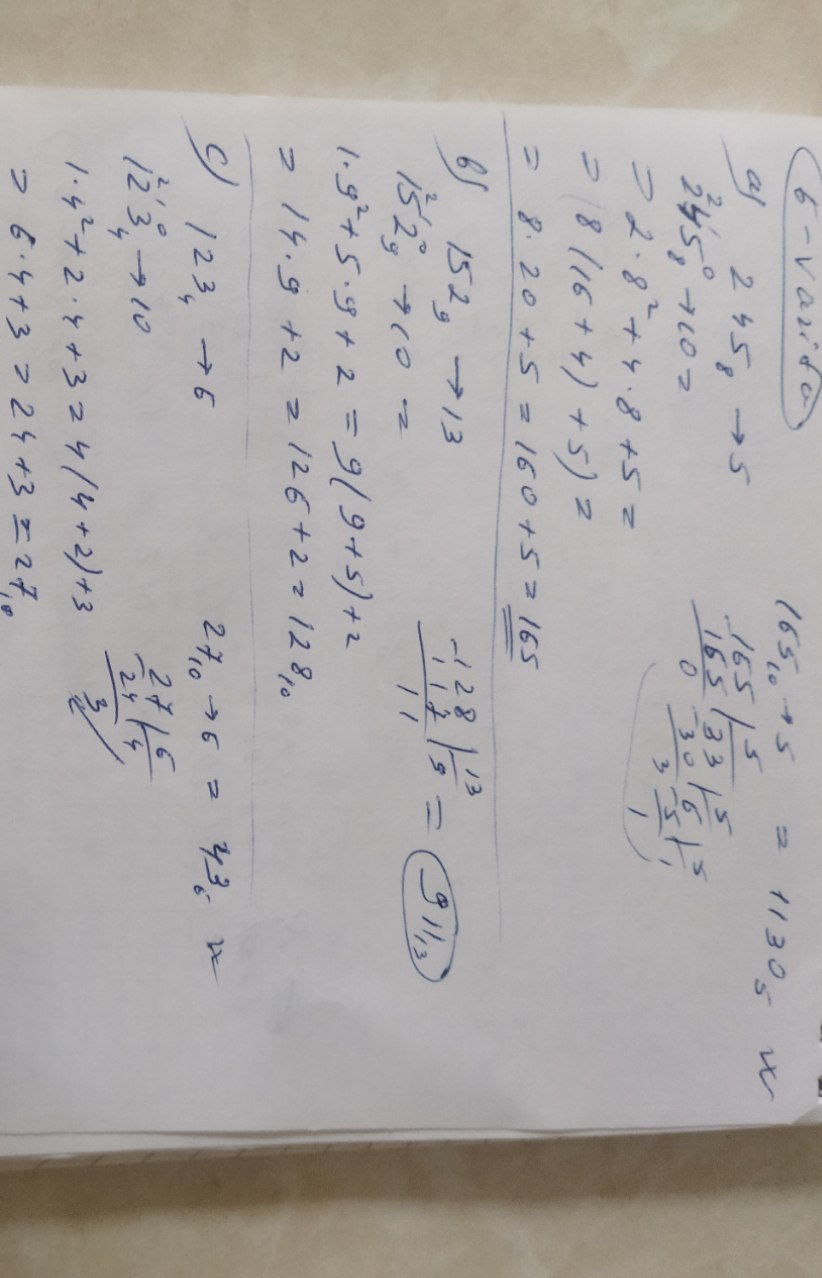 6-variant
a) 245₈ → 5
2²4¹5⁰₈ → 10 =
= 2·8² + 4·8 + 5 =
= 8(16 + 4) + 5) =
= 8·20 + 5 = 160 + 5 = 165
165₁₀ → 5 = 1130₅
-165 | 5
165 | 33 | 5
0 | 30 | 6 | 5
3 | 5 | 1
1
b) 152₉ → 13
1²5¹2⁰₉ → 10 =
1·9² + 5·9 + 2 = 9(9 + 5) + 2
= 14·9 + 2 = 126 + 2 = 128₁₀
-128 | 13
117 | 9 = 911₁₃
11
c) 123₄ → 6
1²2¹3⁰₄ → 10
1·4² + 2·4 + 3 = 4(4 + 2) + 3
= 6·4 + 3 = 24 + 3 = 27₁₀
27₁₀ → 6 = 43₆
-27 | 6
24 | 4
3